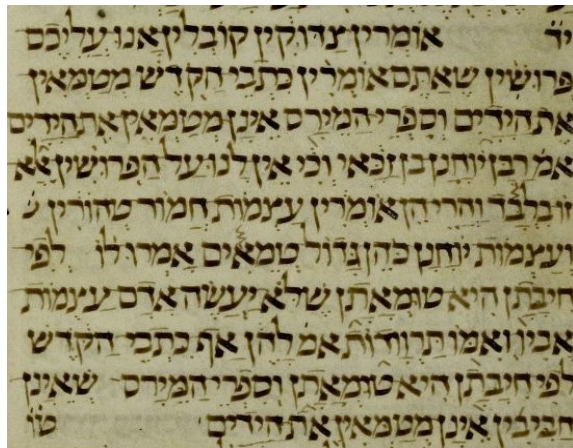 יד אומרין צדוקין קובלין אנו עליכם
פרושין שאתם אומרין כתבי הקדש מטמאין
את הידים וספרי המירס אינן מטמאין את הידים
אמ׳ רבן יוחנן בן זכאי וכי אין לנו על הפרושין אלא
זו בלבד והרי הן אומרין עצמות חמור טהורין
ועצמות יוחנן כהן גדול טמאים אמרו לו לפי
חיבתן היא טומאתן שלא יעשה אדם עצמות
אביו ואמו תרוודות אמ׳ להן אף כתבי הקדש
לפי חיבתן היא טומאתן וספרי המירס שאינן
חביבין אינן מטמאין את הידים טו